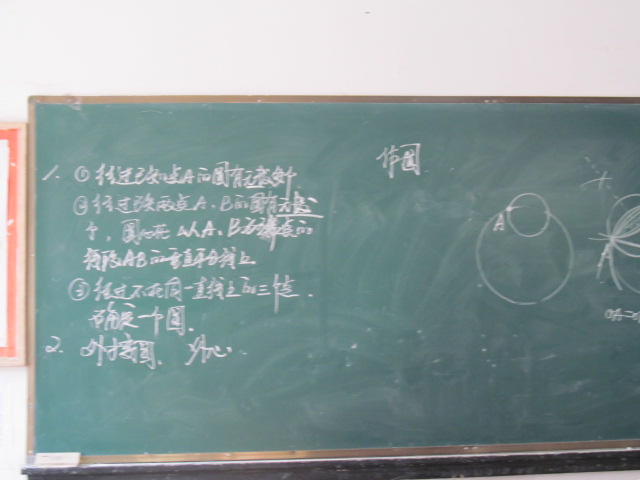 作圆
1. ①经过已知点A的圆有无数个
②经过已知两点A、B的圆有无数
个,圆心在以A、B为端点的
线段AB的垂直平分线上
③经过不在同一直线上的三个点.
确定一个圆.
2. 外接圆. 外心.
A
A